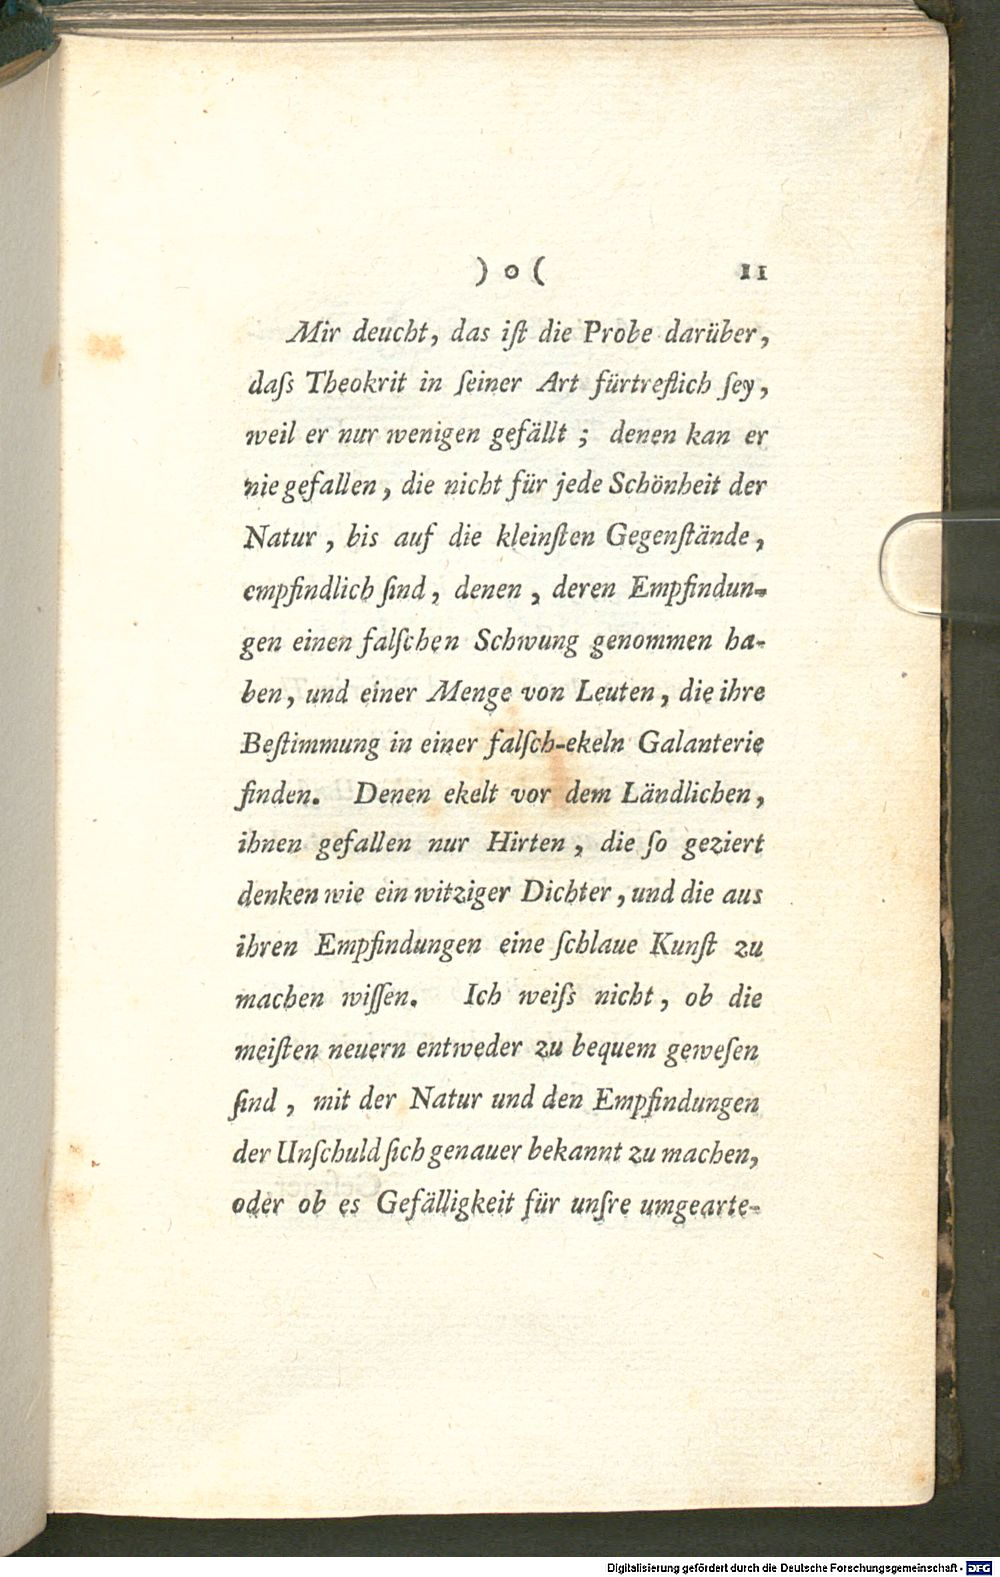 ) o ( 11
Mir deucht, das iſt die Probe darüber,
daſs Theokrit in ſeiner Art fürtreflich ſey,
weil er nur wenigen gefällt ; denen kan er
nie gefallen, die nicht für jede Schönheit der
Natur , bis auf die kleinſten Gegenſtände,
empfindlich ſind, denen , deren Empfindun-
gen einen falſchen Schwung genommen ha-
ben, und einer Menge von Leuten, die ihre
Beſtimmung in einer falſch-ekeln Galanterie
finden. Denen ekelt vor dem Ländlichen,
ihnen gefallen nur Hirten , die ſo geziert
denken wie ein witziger Dichter, und die aus
ihren Empfindungen eine ſchlaue Kunſt zu
machen wiſſen. Ich weiſs nicht, ob die
meiſten neuern entweder zu bequem geweſen
ſind , mit der Natur und den Empfindungen
der Unſchuld ſich genauer bekannt zu machen,
oder ob es Gefälligkeit für unſre umgearte-
Digitalisierung gefördert durch die Deutsche Forschungsgemeinschaft - DFG